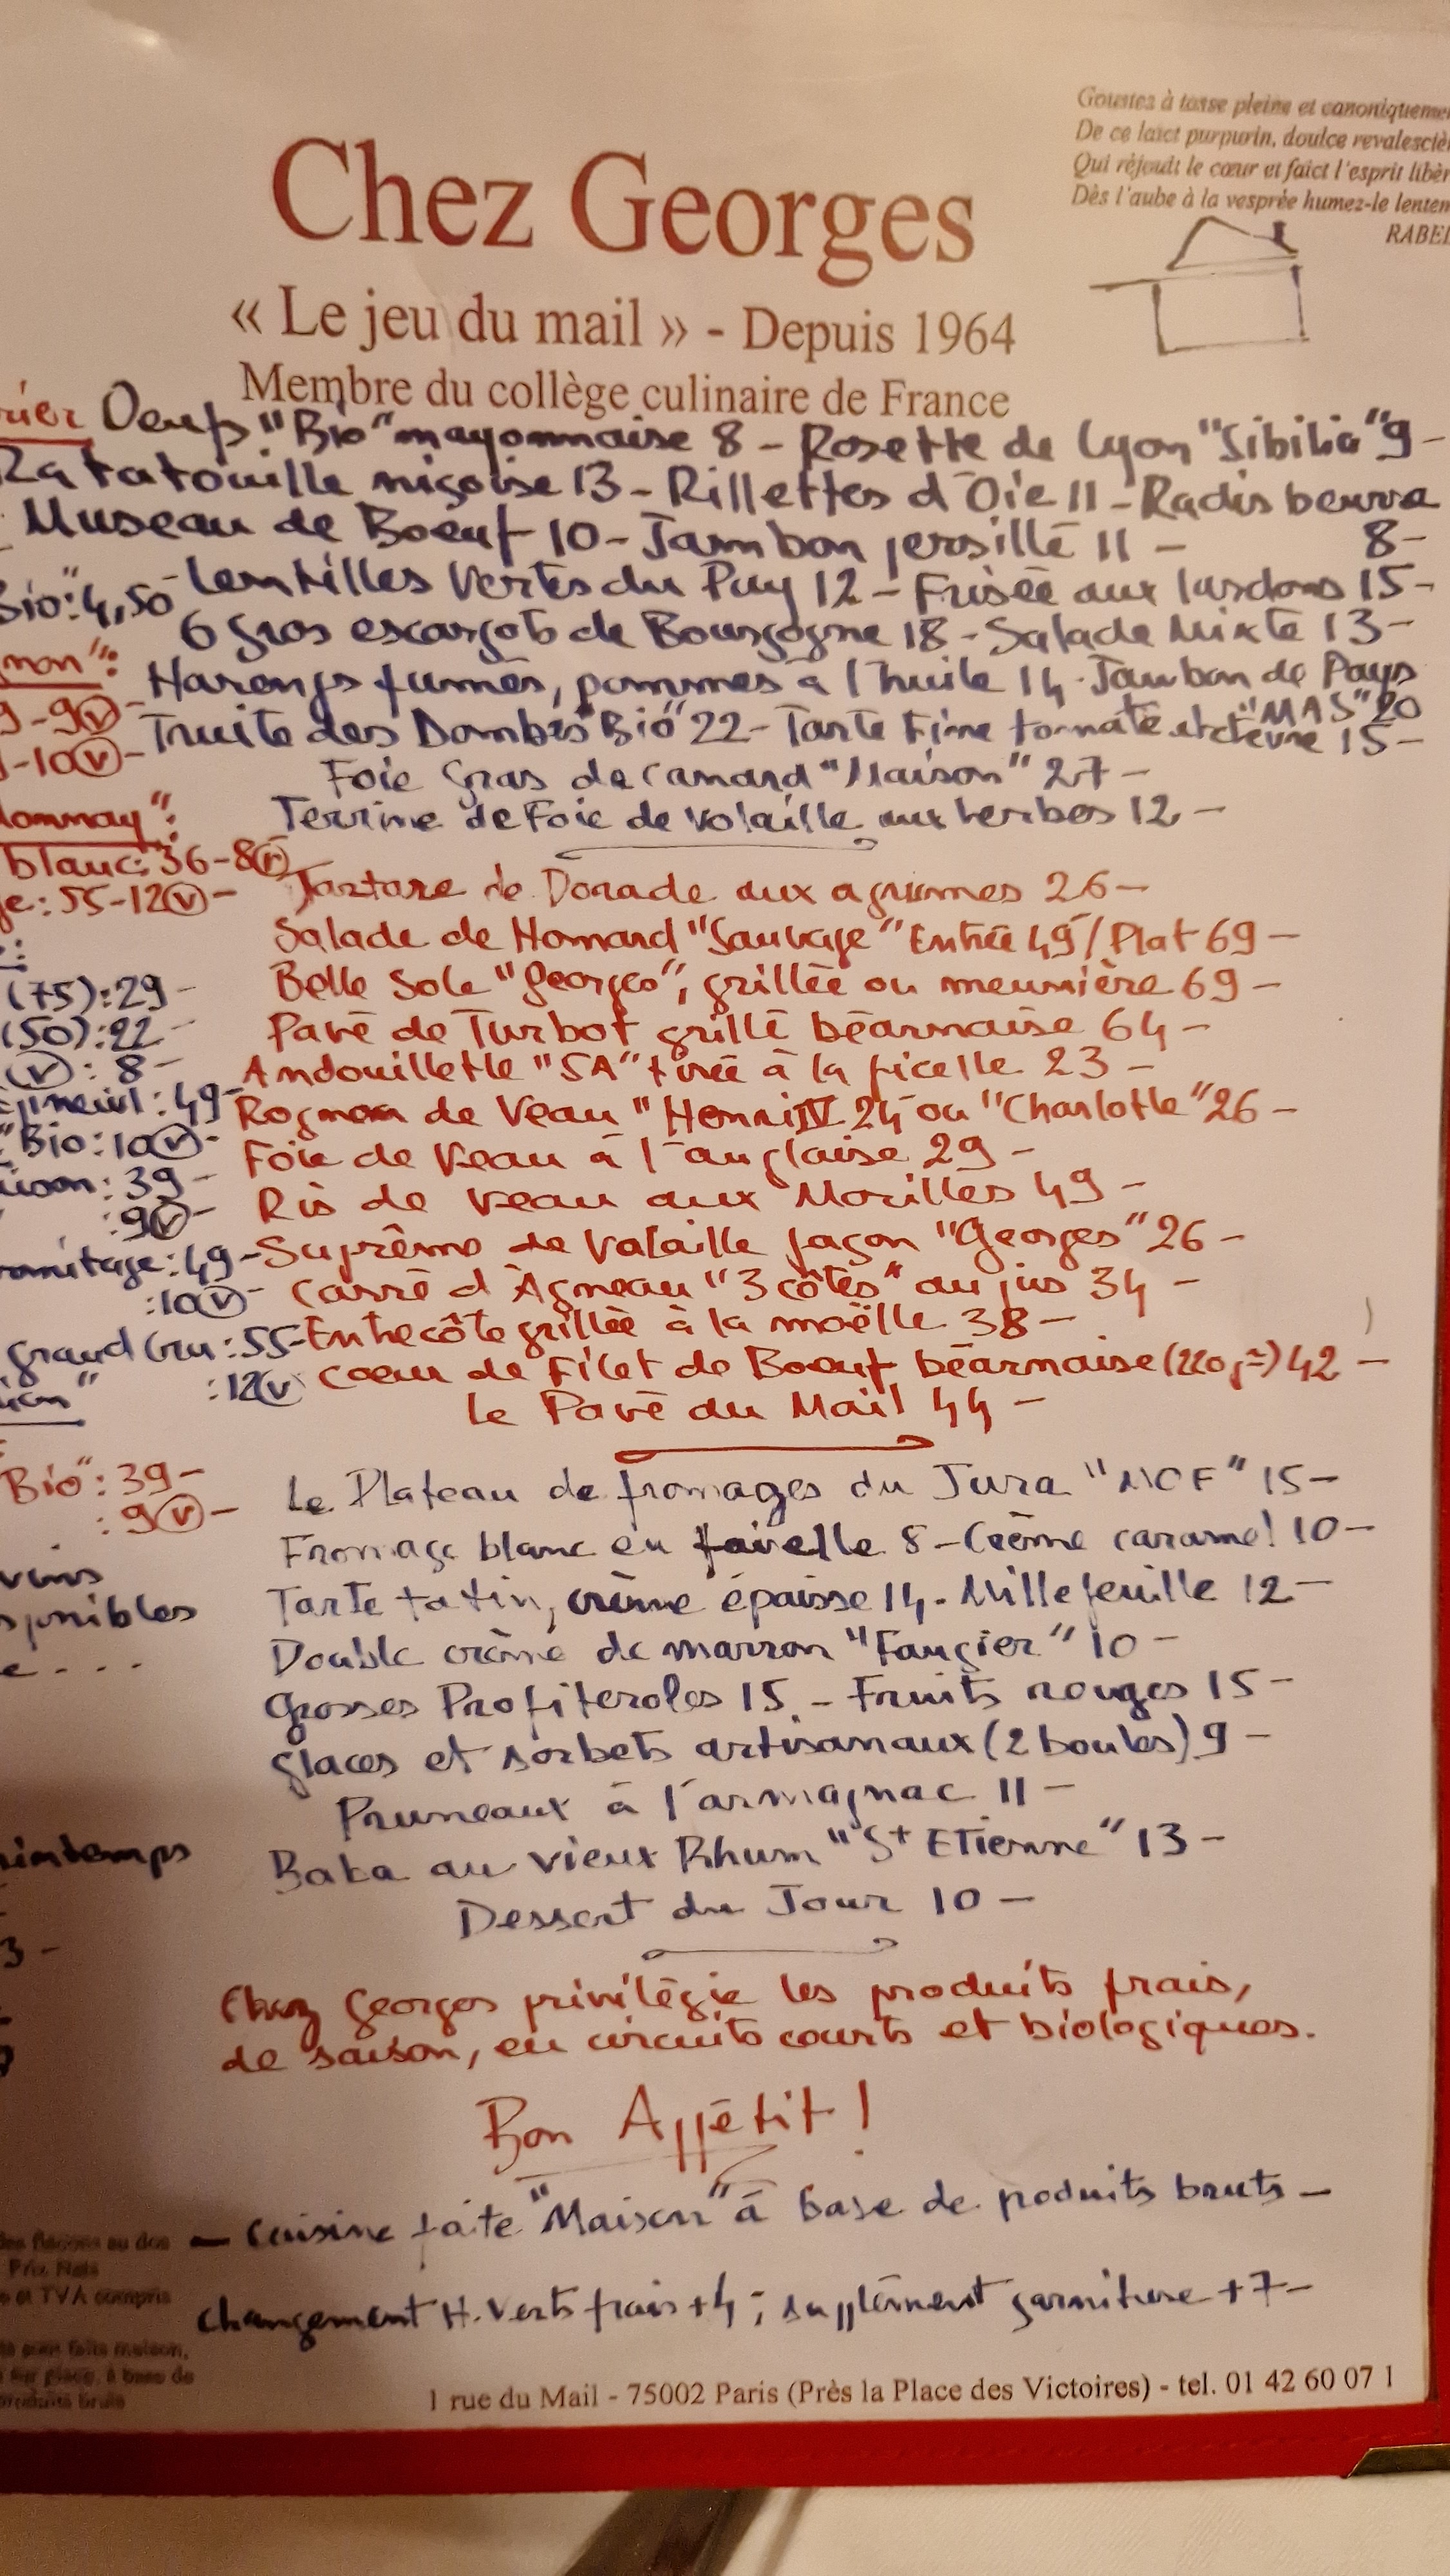 Goustez à tasse pleine et canoniqueme
De ce laict purpurin, doulce revalesciè
Qui réjouit le cœur et faict l'esprit libèr
Dès l'aube à la vesprée humez-le lentem
RABEL
Chez Georges
« Le jeu du mail » - Depuis 1964
Membre du collège culinaire de France
rier Oeufs "Bio" mayonnaise 8 - Rosette de Lyon "Sibilia" 9 -
Ratatouille niçoise 13 - Rillettes d'Oie 11 - Radis beurre
Museau de Boeuf 10 - Jambon persillé 11 - 8-
Bio": 4,50 - Lentilles Vertes du Puy 12 - Frisée aux lardons 15 -
6 gros escargots de Bourgogne 18 - Salade Mixte 13 -
non": Harengs fumés, pommes à l'huile 14 - Jambon de Pays
"MAS" 20
9-9(v)- Truite des Dombes "Bio" 22 - Tarte Fine tomate et chèvre 15 -
-10(v)- Foie Gras de Canard "Maison" 27 -
donnay": Terrine de Foie de Volaille aux herbes 12 -
blanc: 36-8(v)
Tartare de Dorade aux agrumes 26 -
e: 55-12(v)-
Salade de Homard "Sauvage" Entrée 49 / Plat 69 -
(75): 29 - Belle Sole "Georges", grillée ou meunière 69 -
(50): 22 - Pavé de Turbot grillé béarnaise 64 -
(v): 8 - Andouillette "5A" tirée à la ficelle 23 -
: 49 - Rognon de Veau "Henri IV 24 ou "Charlotte" 26 -
"Bio: 10(v)- Foie de Veau à l'anglaise 29 -
ison: 39 - Ris de Veau aux Morilles 49 -
: 9(v)-
Suprême de Volaille façon "Georges" 26 -
ermitage: 49 -
: 10(v)- Carré d'Agneau "3 côtes" au jus 34 -
grand Cru: 55 - Entrecôte grillée à la moëlle 38 -
: 12(v) Coeur de Filet de Boeuf béarnaise (220g) 42 -
Le Pavé du Mail 44 -
Bio": 39 - Le Plateau de fromages du Jura "MOF" 15 -
: 9(v)-
Fromage blanc en faisselle 8 - Crème caramel 10 -
vins
Tarte tatin, crème épaisse 14 - Millefeuille 12 -
sponibles
Double crème de marron "Faugier" 10 -
e ....
Grosses Profiteroles 15 - Fruits rouges 15 -
Glaces et sorbets artisanaux (2 boules) 9 -
Pruneaux à l'armagnac 11 -
rintemps Baba au vieux Rhum "St Etienne" 13 -
Dessert du Jour 10 -
3 -
Chez Georges privilégie les produits frais,
de saison, en circuits courts et biologiques.
Bon Appétit !
- Cuisine faite "Maison" à base de produits bruts -
des flacons au dos
Prix Nets
et TVA compris
changement H. Verts frais + 4 ; supplément garniture + 7 -
sont faits maison,
sur place, à base de
produits bruts
1 rue du Mail - 75002 Paris (Près la Place des Victoires) - tel. 01 42 60 07 1